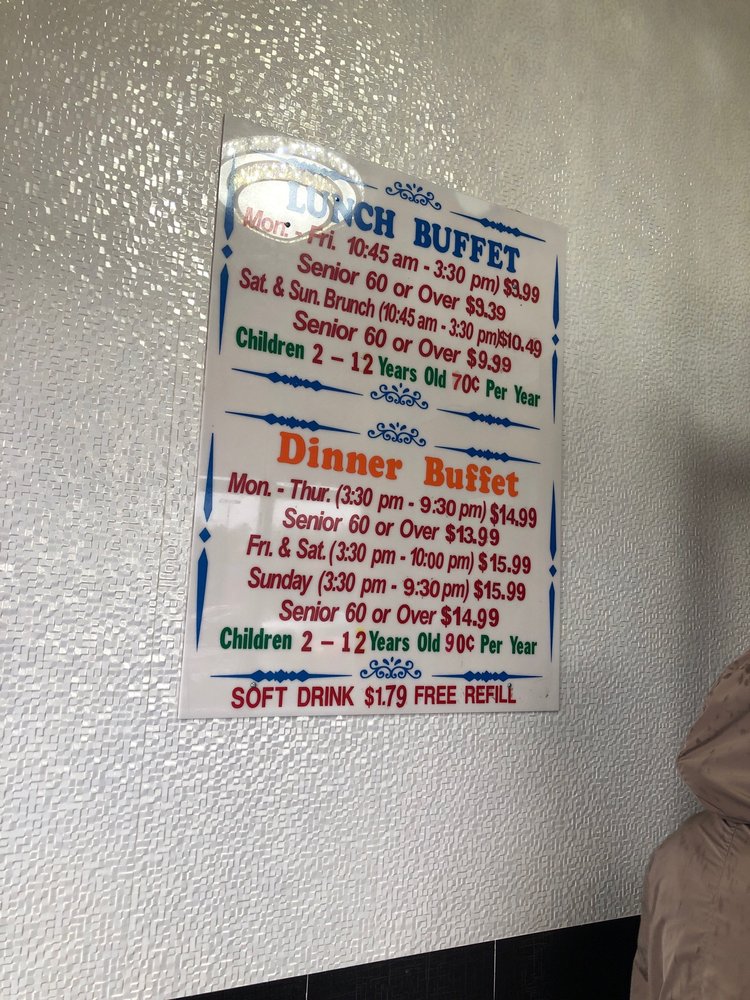 LUNCH BUFFET
Mon. - Fri. 10:45 am - 3:30 pm) $9.99
Senior 60 or Over $9.39
Sat. & Sun. Brunch (10:45 am - 3:30 pm)$10.49
Senior 60 or Over $9.99
Children 2 - 12 Years Old 70¢ Per Year
Dinner Buffet
Mon. - Thur. (3:30 pm - 9:30 pm) $14.99
Senior 60 or Over $13.99
Fri. & Sat. (3:30 pm - 10:00 pm) $15.99
Sunday (3:30 pm - 9:30 pm) $15.99
Senior 60 or Over $14.99
Children 2 - 12 Years Old 90¢ Per Year
SOFT DRINK $1.79 FREE REFILL